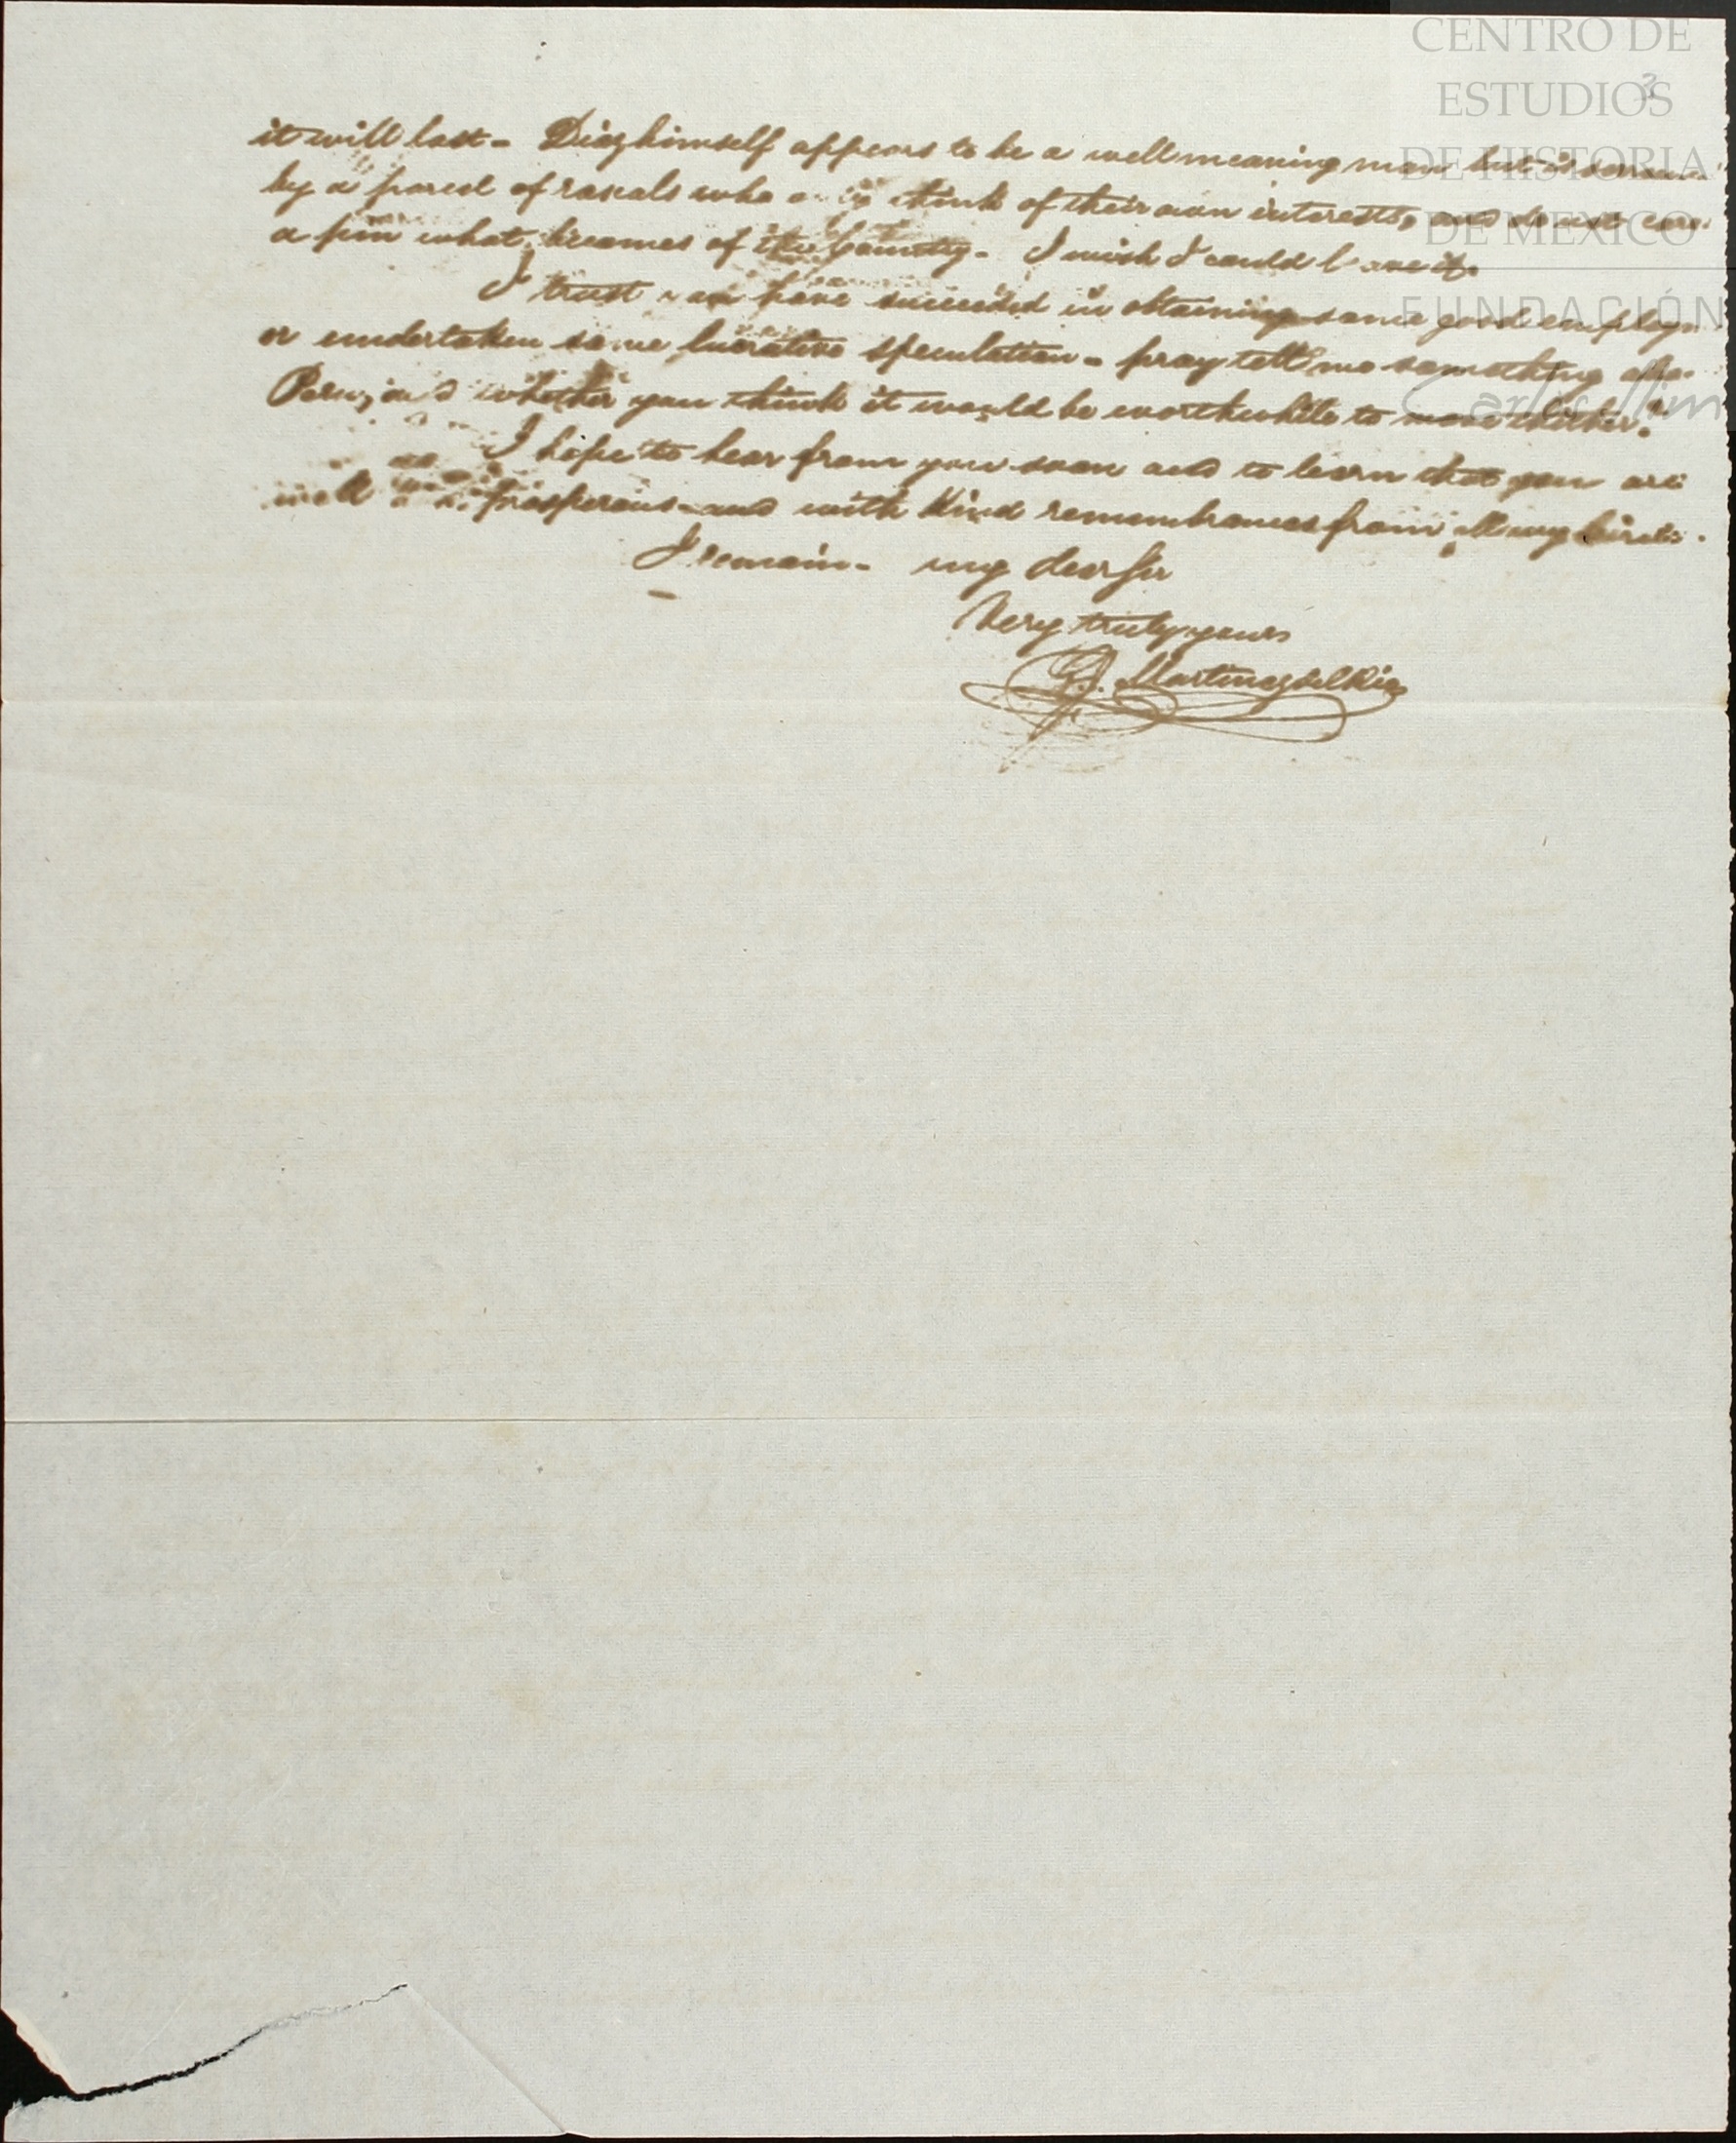 CENTRO DE
ESTUDIOS
DE HISTORIA
DE MÉXICO
FUNDACIÓN
Carlos Slim
3
it will last - Diaz himself appears to be a well meaning man but is
by a parcel of rascals who only think of their own interests, and do not care
a pin what becomes of the Country - I wish I could leave it.
I trust you have succeeded in obtaining some good
or undertaken some lucrative speculation - pray tell me something
Peru, and whether you think it would be worthwhile to move thither?
I hope to hear from you soon and to learn that you are
well prosperous - and with Kind remembrances from all my
I remain - my dear Sir
Very truly yours
Martinez del Rio